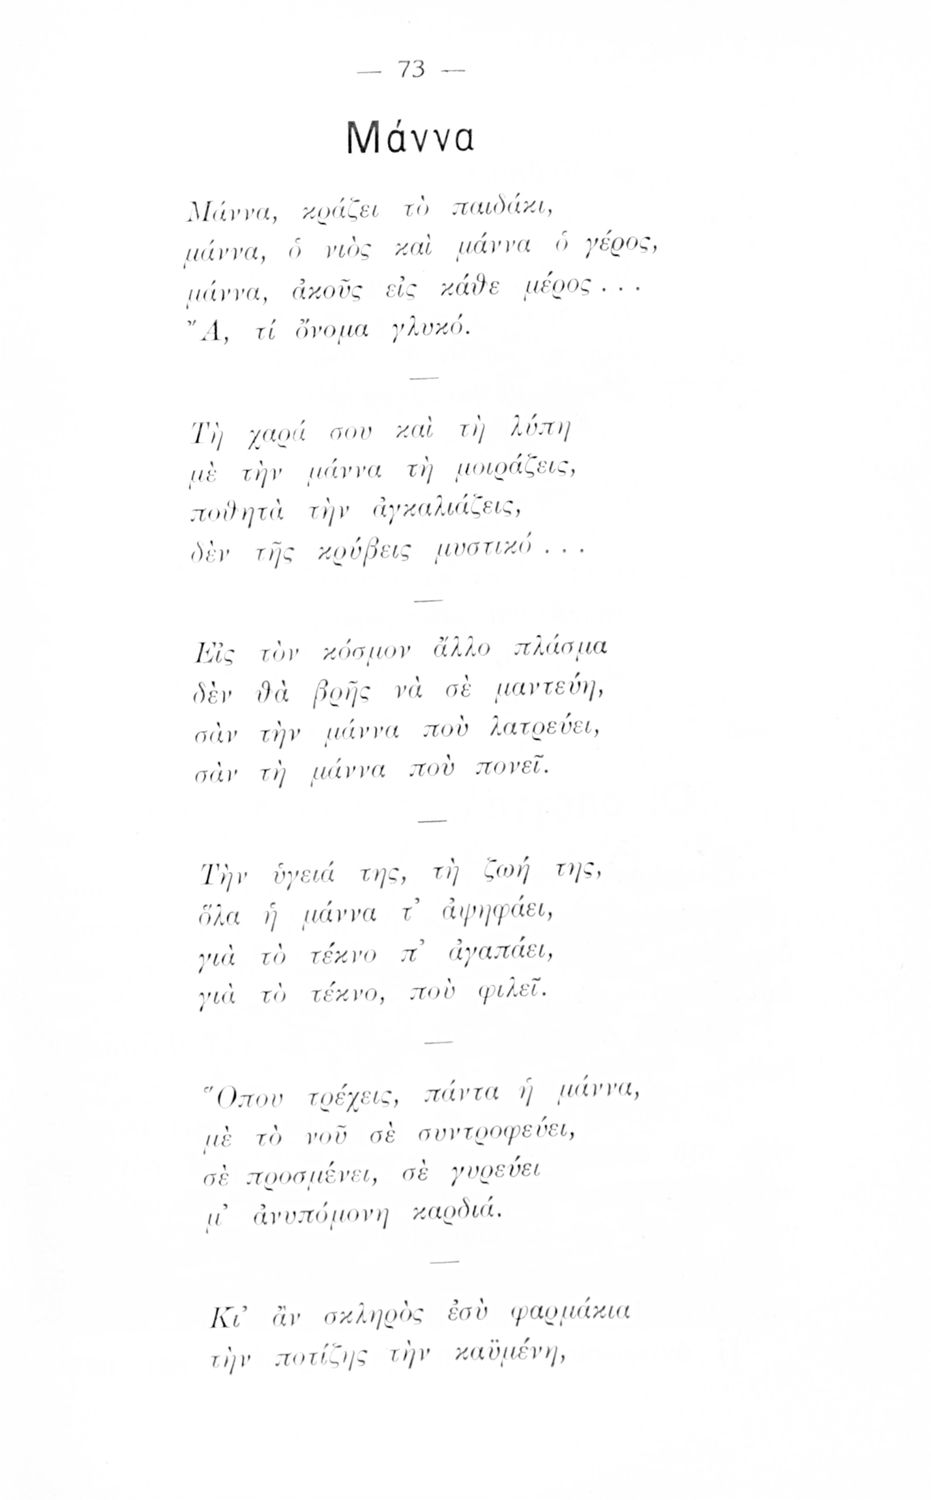 — 73 —
Μάννα
Μάννα, κράζει τὸ παιδάκι,
μάννα, ὁ νιὸς καὶ μάννα ὁ γέρος,
μάννα, ἀκοῦς εἰς κάθε μέρος . . .
Ἄ, τί ὄνομα γλυκό.
—
Τὴ χαρά σου καὶ τὴ λύπη
μὲ τὴν μάννα τὴ μοιράζεις,
ποθητὰ τὴν ἀγκαλιάζεις,
δὲν τῆς κρύβεις μυστικό . . .
—
Εἰς τὸν κόσμον ἄλλο πλάσμα
δὲν θὰ βρῇς νὰ σὲ μαντεύῃ,
σὰν τὴν μάννα ποὺ λατρεύει,
σὰν τὴ μάννα ποὺ πονεῖ.
—
Τὴν ὑγειά της, τὴ ζωή της,
ὅλα ἡ μάννα τ’ ἀψηφάει,
γιὰ τὸ τέκνο π’ ἀγαπάει,
γιὰ τὸ τέκνο, ποὺ φιλεῖ.
—
Ὅπου τρέχεις, πάντα ἡ μάννα,
μὲ τὸ νοῦ σὲ συντροφεύει,
σὲ προσμένει, σὲ γυρεύει
μ’ ἀνυπόμονη καρδιά.
—
Κι’ ἂν σκληρὸς ἐσὺ φαρμάκια
τὴν ποτίζης τὴν καϋμένη,